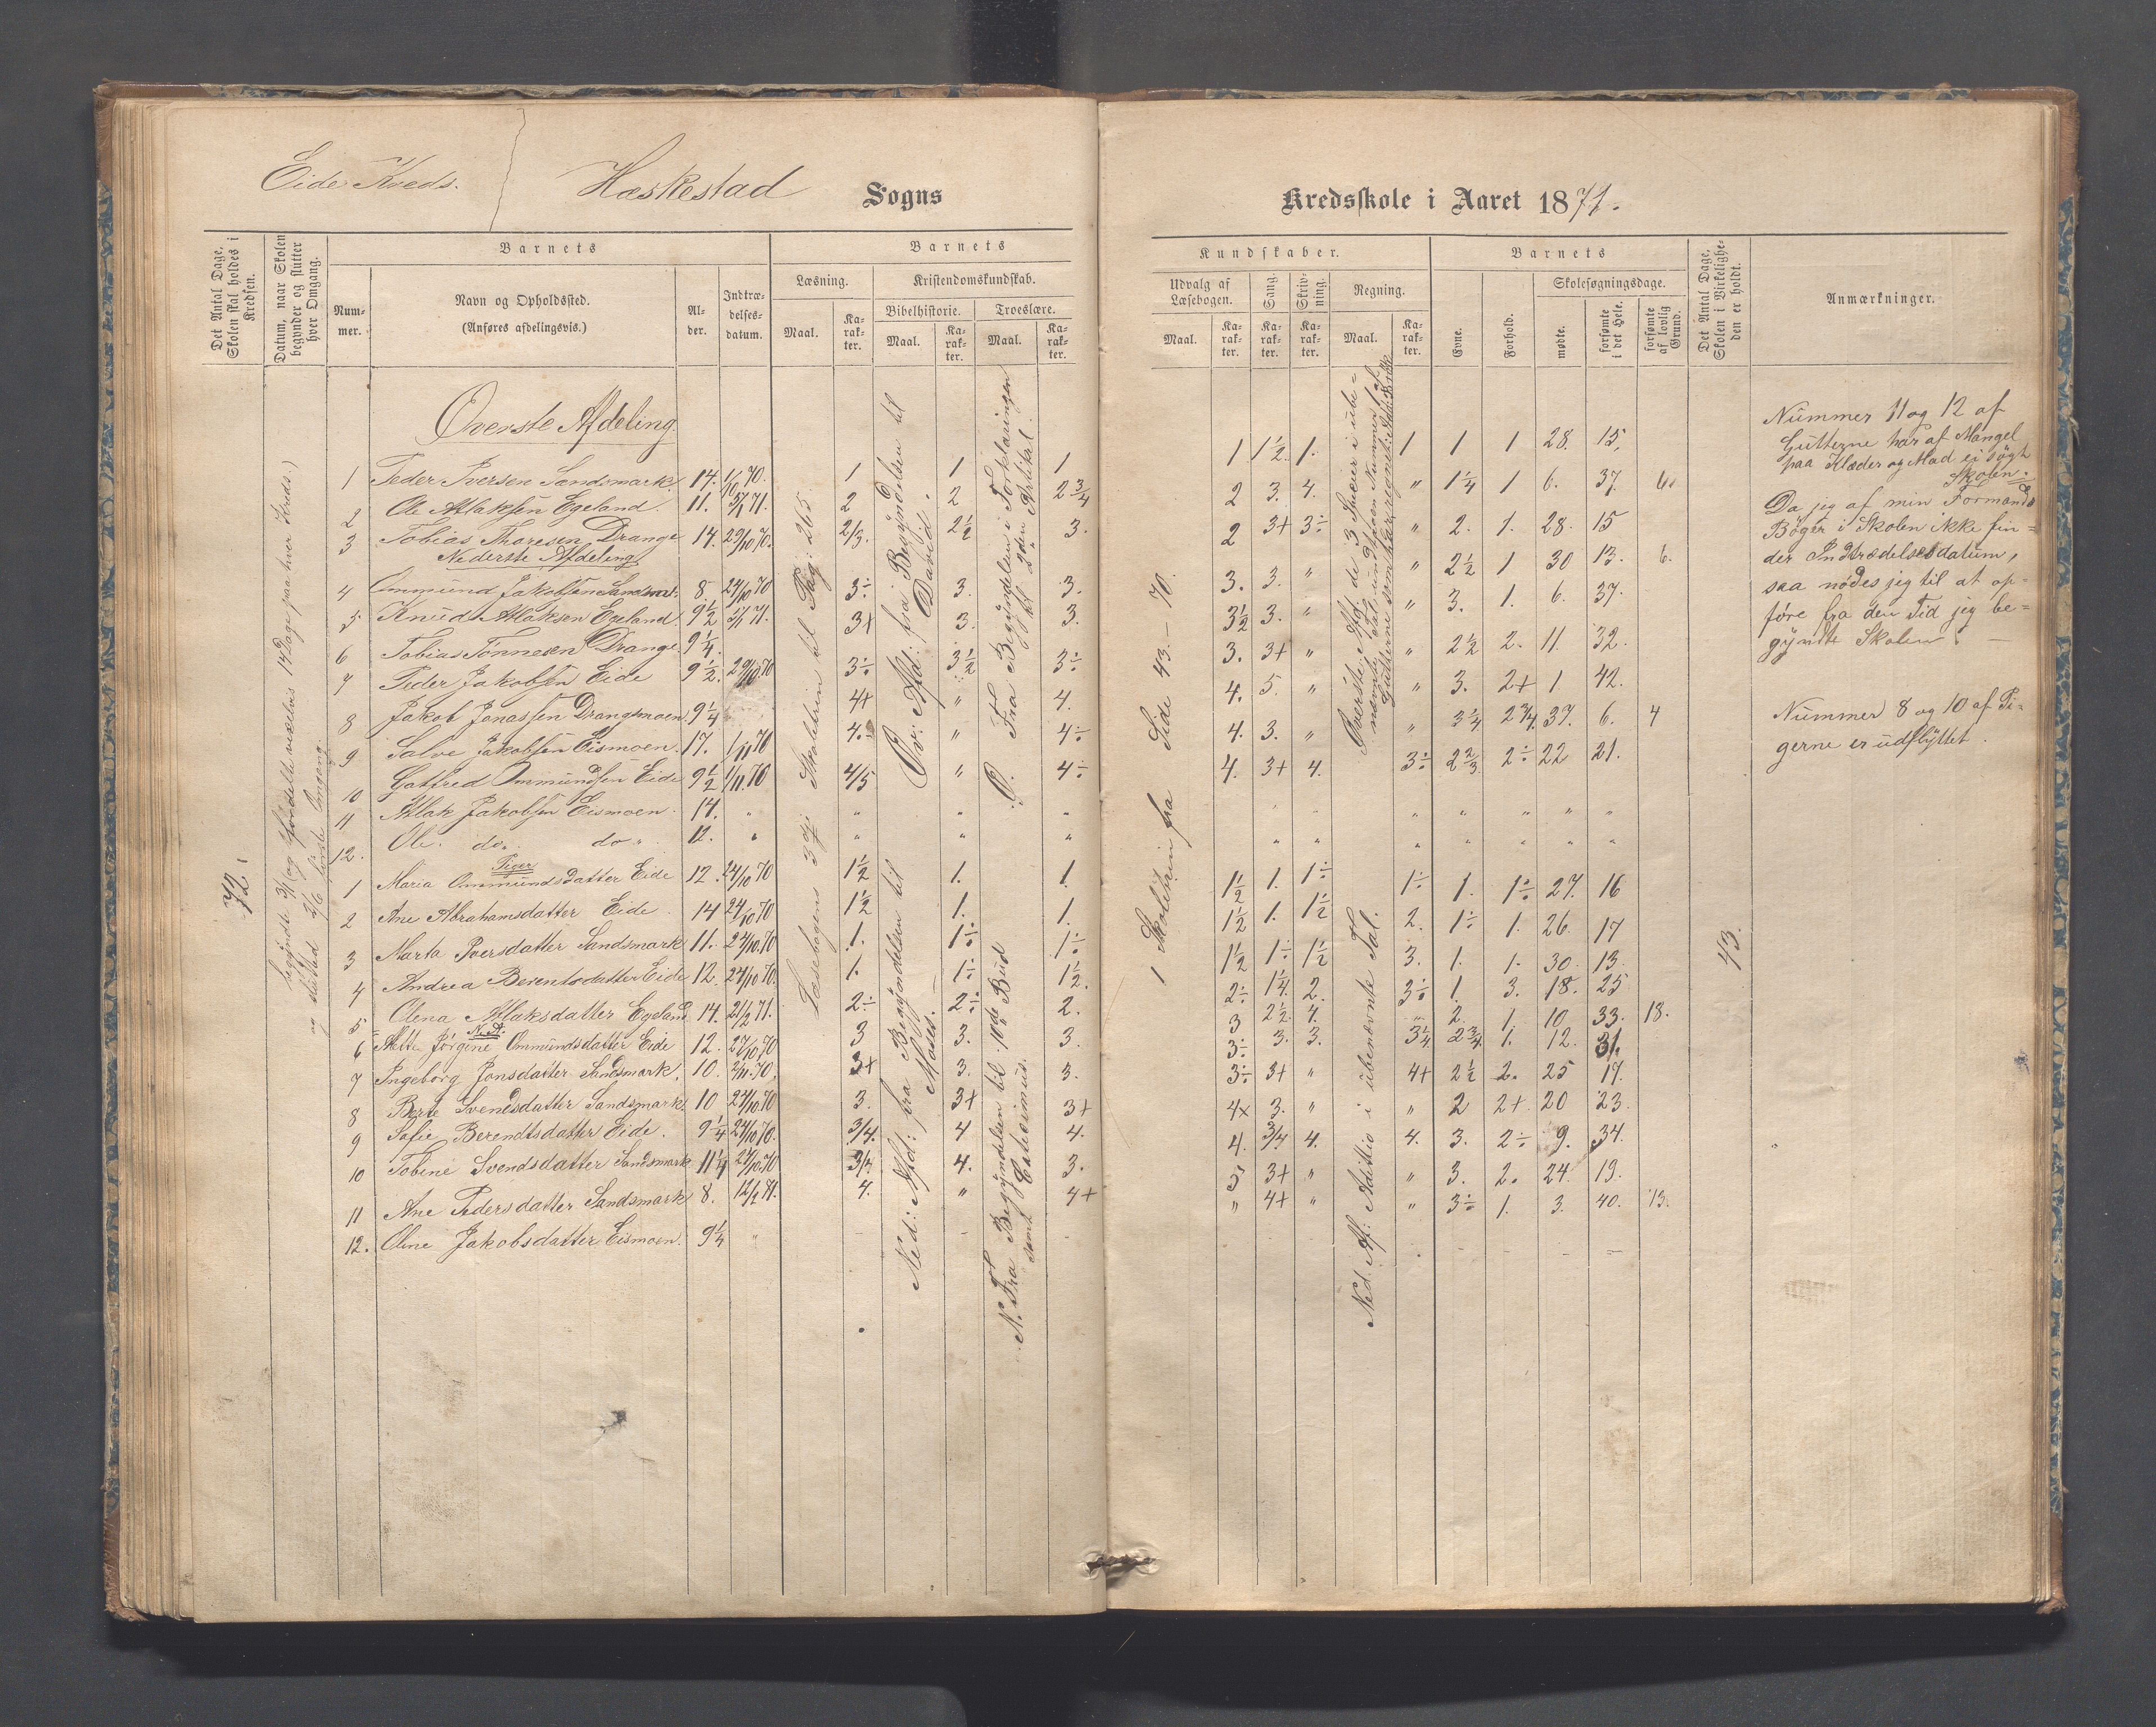 Eide Kreds. Hæskestad Sogns
Kredsskole i Aaret 1871.
Det Antal Dage, Skolen skal holdes i Kredsen.
Datum, naar Skolen begynder og slutter hver Omgang.
Barnets
Num-mer.
Navn og Opholdssted.
(Anføres afdelingsvis.)
Al-der.
Indtræ-delses-datum.
Barnets
Læsning.
Maal.
Ka-rak-ter.
Kristendomskundskab.
Bibelhistorie.
Maal.
Ka-rak-ter.
Troeslære.
Maal.
Ka-rak-ter.
Kundskaber.
Udvalg af Læsebogen.
Maal.
Ka-rak-ter.
Sang.
Ka-rak-ter.
Skriv-ning.
Ka-rak-ter.
Regning.
Maal.
Ka-rak-ter.
Barnets
Evne.
Forhold.
Skolesøgningsdage.
mødte.
forsømte i det Hele.
forsømte af lovlig Grund.
Det Antal Dage, Skolen i Virkelighe-den er holdt.
Anmærkninger.
72.
Læsebogens 3die Skoletrin til Pag: 265
Øv: Afd: fra Begyndelsen til David.
Ø. Fra Begyndelsen i Forklaringen til 2den Artikel.
Ned: Afd: fra Begyndelsen til Moses.
N. Fra Begyndelsen til 10de Bud samt Catecismus.
1 Skoletrin fra Side 43 – 70.
Ned. Af: Additio i ubenævnte Tal.
43.
Øverste Afdeling.
1 Peder Iversen Sandsmark. 14. 1/10 70. 1 1 1 1 1½ 1. 1 1 1 28. 15.
2 Ole Atlaksen Egeland. 11. 5/1 71. 2 2 2¾ 2 3. 4. " 1¼ 1 6. 37. 6.
3 Tobias Tharesen Drange 14. 29/10 70. 2/3. 2½ 3. 2 3+ 3÷ " 2. 1. 28. 15
Nederste Afdeling
4 Ommund Jakobsen Sandsm. 8. 24/10 70 3÷ 3. 3. 3. 3. " " 2½ 1 30 13. 6.
5 Knud Atlaksen Egeland. 9½ 5/1 71. 3+ 3. 3. 3½ 3. " " 3. 1. 6. 37.
6 Tobias Tønnesen Drange 9¼. 3÷ 3½ 3÷ 3. 3+ " " 2½ 2. 11. 32.
7 Peder Jakobsen Eide 9½. 29/10 70 4+ " 4. 4. 5. " " 3. 2+ 1 42.
8 Jakob Jonassen Drangsmoen. 9¼ 4÷ " 4÷ 4. 3. " " 3¼ 2¾. 37. 6. 4
9 Salve Jakobsen Eismoen. 17. 1/11 70 4/5 " 4÷ 4. 3+ 4. 3÷ 2⅔ 2÷ 22 21.
10 Gotfred Ommundsen Eide 9½ 1/11. 70
11 Atlak Jakobsen Eismoen. 14. "
12. Ole. do. do. 12. "
Piger
1 Maria Ommundsdatter Eide 12. 24/10 70 1½ 1. 1. 1½ 1. 1÷ 1÷ 1. 1÷ 27. 16
2 Ane Abrahamsdatter Eide. 14 24/10 70 1½ 1. 1. 1½ 1. 1½ 2. 1÷ 1. 26. 17
3 Marta Iversdatter Sandsmark 11. 24/10. 70 1. 1÷ 1÷ 1½ 1÷ 1½ 3. 1. 1. 30. 13.
4 Andrea Berentsdatter Eide 12. 24/10 70. 1. 1÷ 1½. 2÷ 1¼ 2. 3÷ 1. 3. 18. 25
5 Olena Atlaksdatter Egeland. 14. 21/2 71. 2÷ 2÷ 2. 3 2½ 4. " 2. 1 10 33. 18.
N. A.
6 Mette Jørgine Ommundsdatter Eide 12. 27/10. 70 3 3. 3. 3÷ 3. 3. 3¼ 2¾. 1. 12. 31.
7 Ingeborg Jonsdatter Sandsmark. 10. 2/11. 70. 3+ 3. 3. 3÷ 3+ " 4+ 2½ 2. 25 17.
8 Berte Svendsdatter Sandsmark. 10 24/10. 70 3. 3+ 3+ 4× 3. " " 2 2+. 20 23.
9 Sofie Berendtsdatter Eide. 9¼ 24/10 70. 3/4. 4 4. 4. 3/4 4. 4. 3. 2÷ 9. 34.
10 Tobine Svendsdatter Sandsmark 11¼ 24/10. 70 3/4. 4. 3. 5 3+ " " 3. 2. 24. 19.
11 Ane Pedersdatter Sandsmark 8. 12/2 71. 4. " 4+ " 4+ " " 3÷ 1. 3. 40. 13.
12. Oline Jakobsdatter Eismoen. 9¼ "
Nummer 11 og 12 af
Gutterne har af Mangel
paa Klæder og Mad ei søgt
Skolen.
Da jeg af min Formands
Bøger i Skolen ikke fin=
der Indtrædelsesdatum,
saa nødes jeg til at op=
føre fra den Tid jeg be=
gyndte Skolen. —
Nummer 8 og 10 af Pi=
gerne er udflyttet.